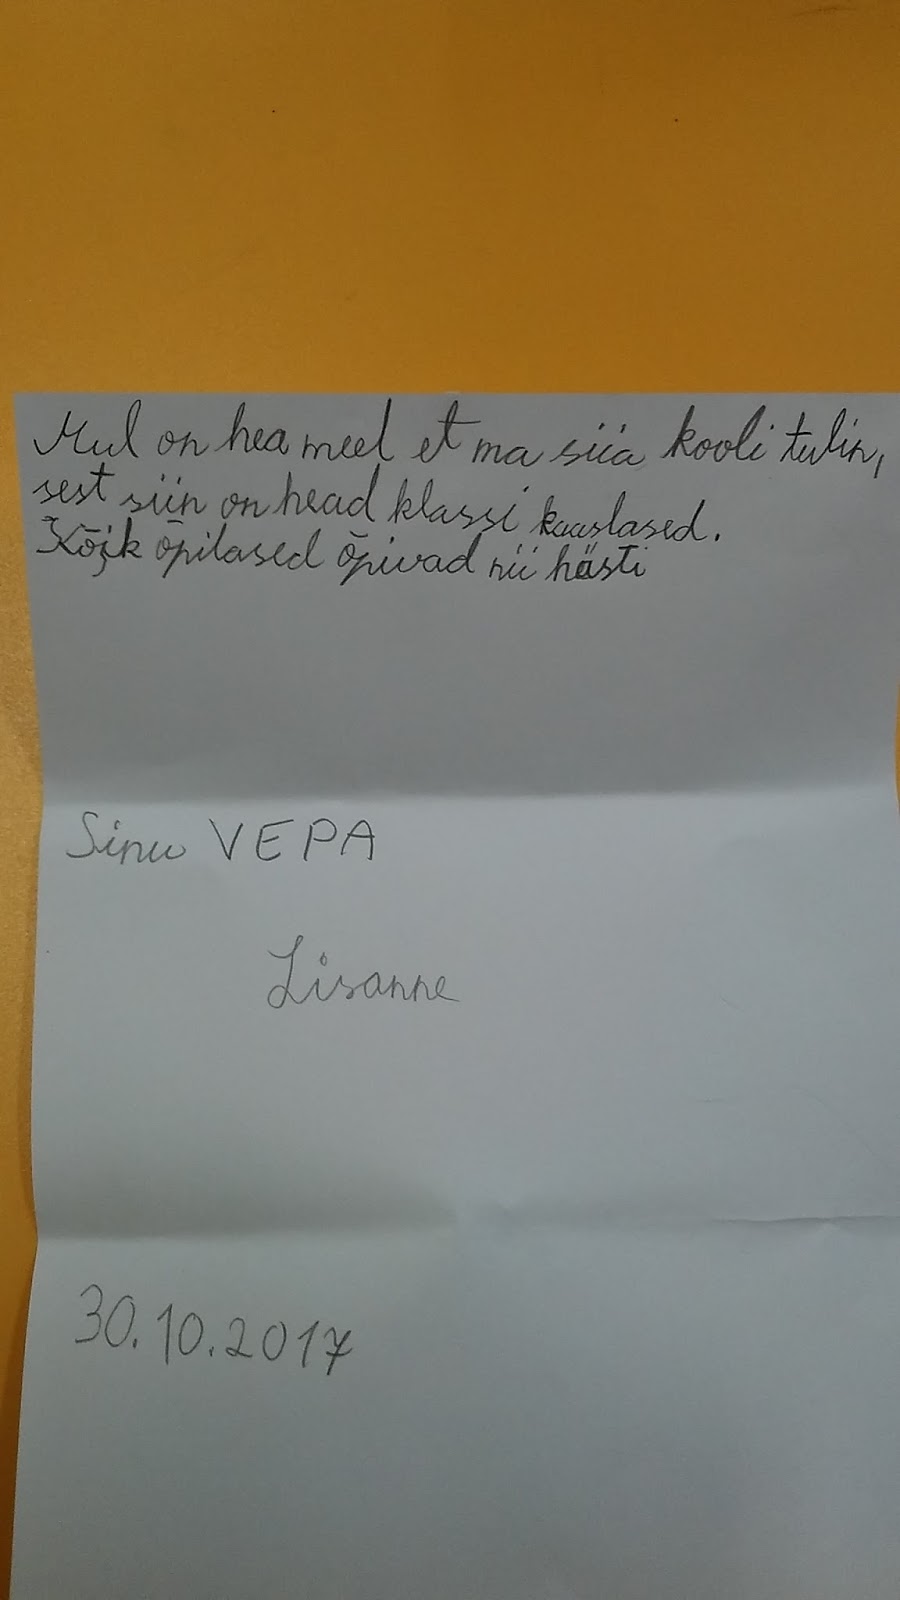 Mul on hea meel et ma siia kooli tulin,
sest siin on head klassi kaaslased.
Kõik õpilased õpivad nii hästi
Sinu VEPA
Lisanne
30.10.2017